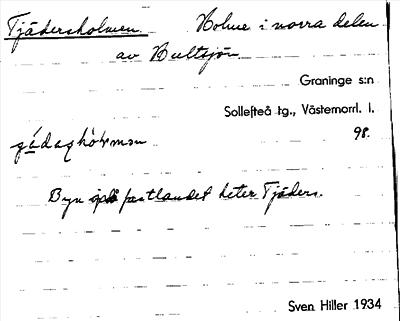 Tjädersholmen. Holme i norra delen
av Hultsjön
Graninge s:n
Sollefteå tg., Västernorrl. l.
98.
Byn på fastlandet heter Tjäders.
Sven Hiller 1934